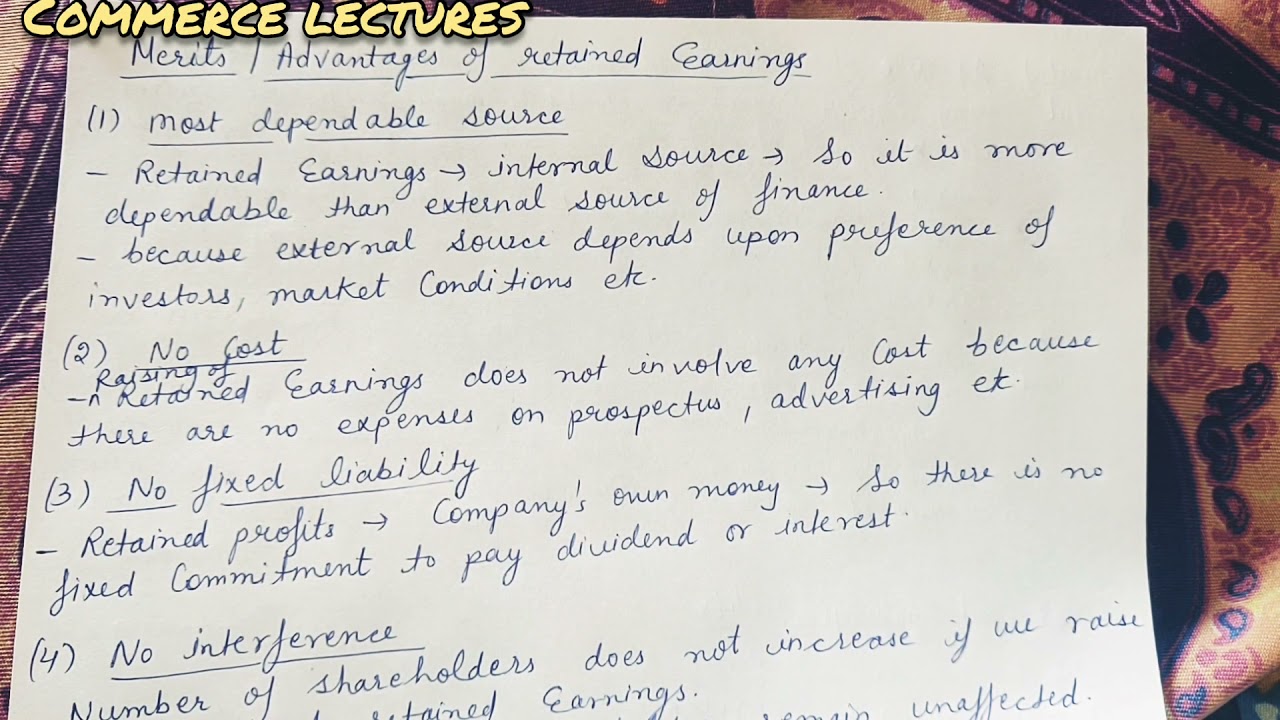 COMMERCE LECTURES
Merits / Advantages of retained Earnings
(1) most dependable source
- Retained Earnings → internal source → So it is more
dependable than external source of finance.
- because external source depends upon preference of
investors, market Conditions etc.
(2) No Cost
Raising of
- ^ Retained Earnings does not involve any Cost because
there are no expenses on prospectus, advertising etc.
(3) No fixed liability
- Retained profits → Company's own money → So there is no
fixed Commitment to pay dividend or interest.
(4) No interference
Number of shareholders does not increase if we raise
retained Earnings.
remain unaffected.